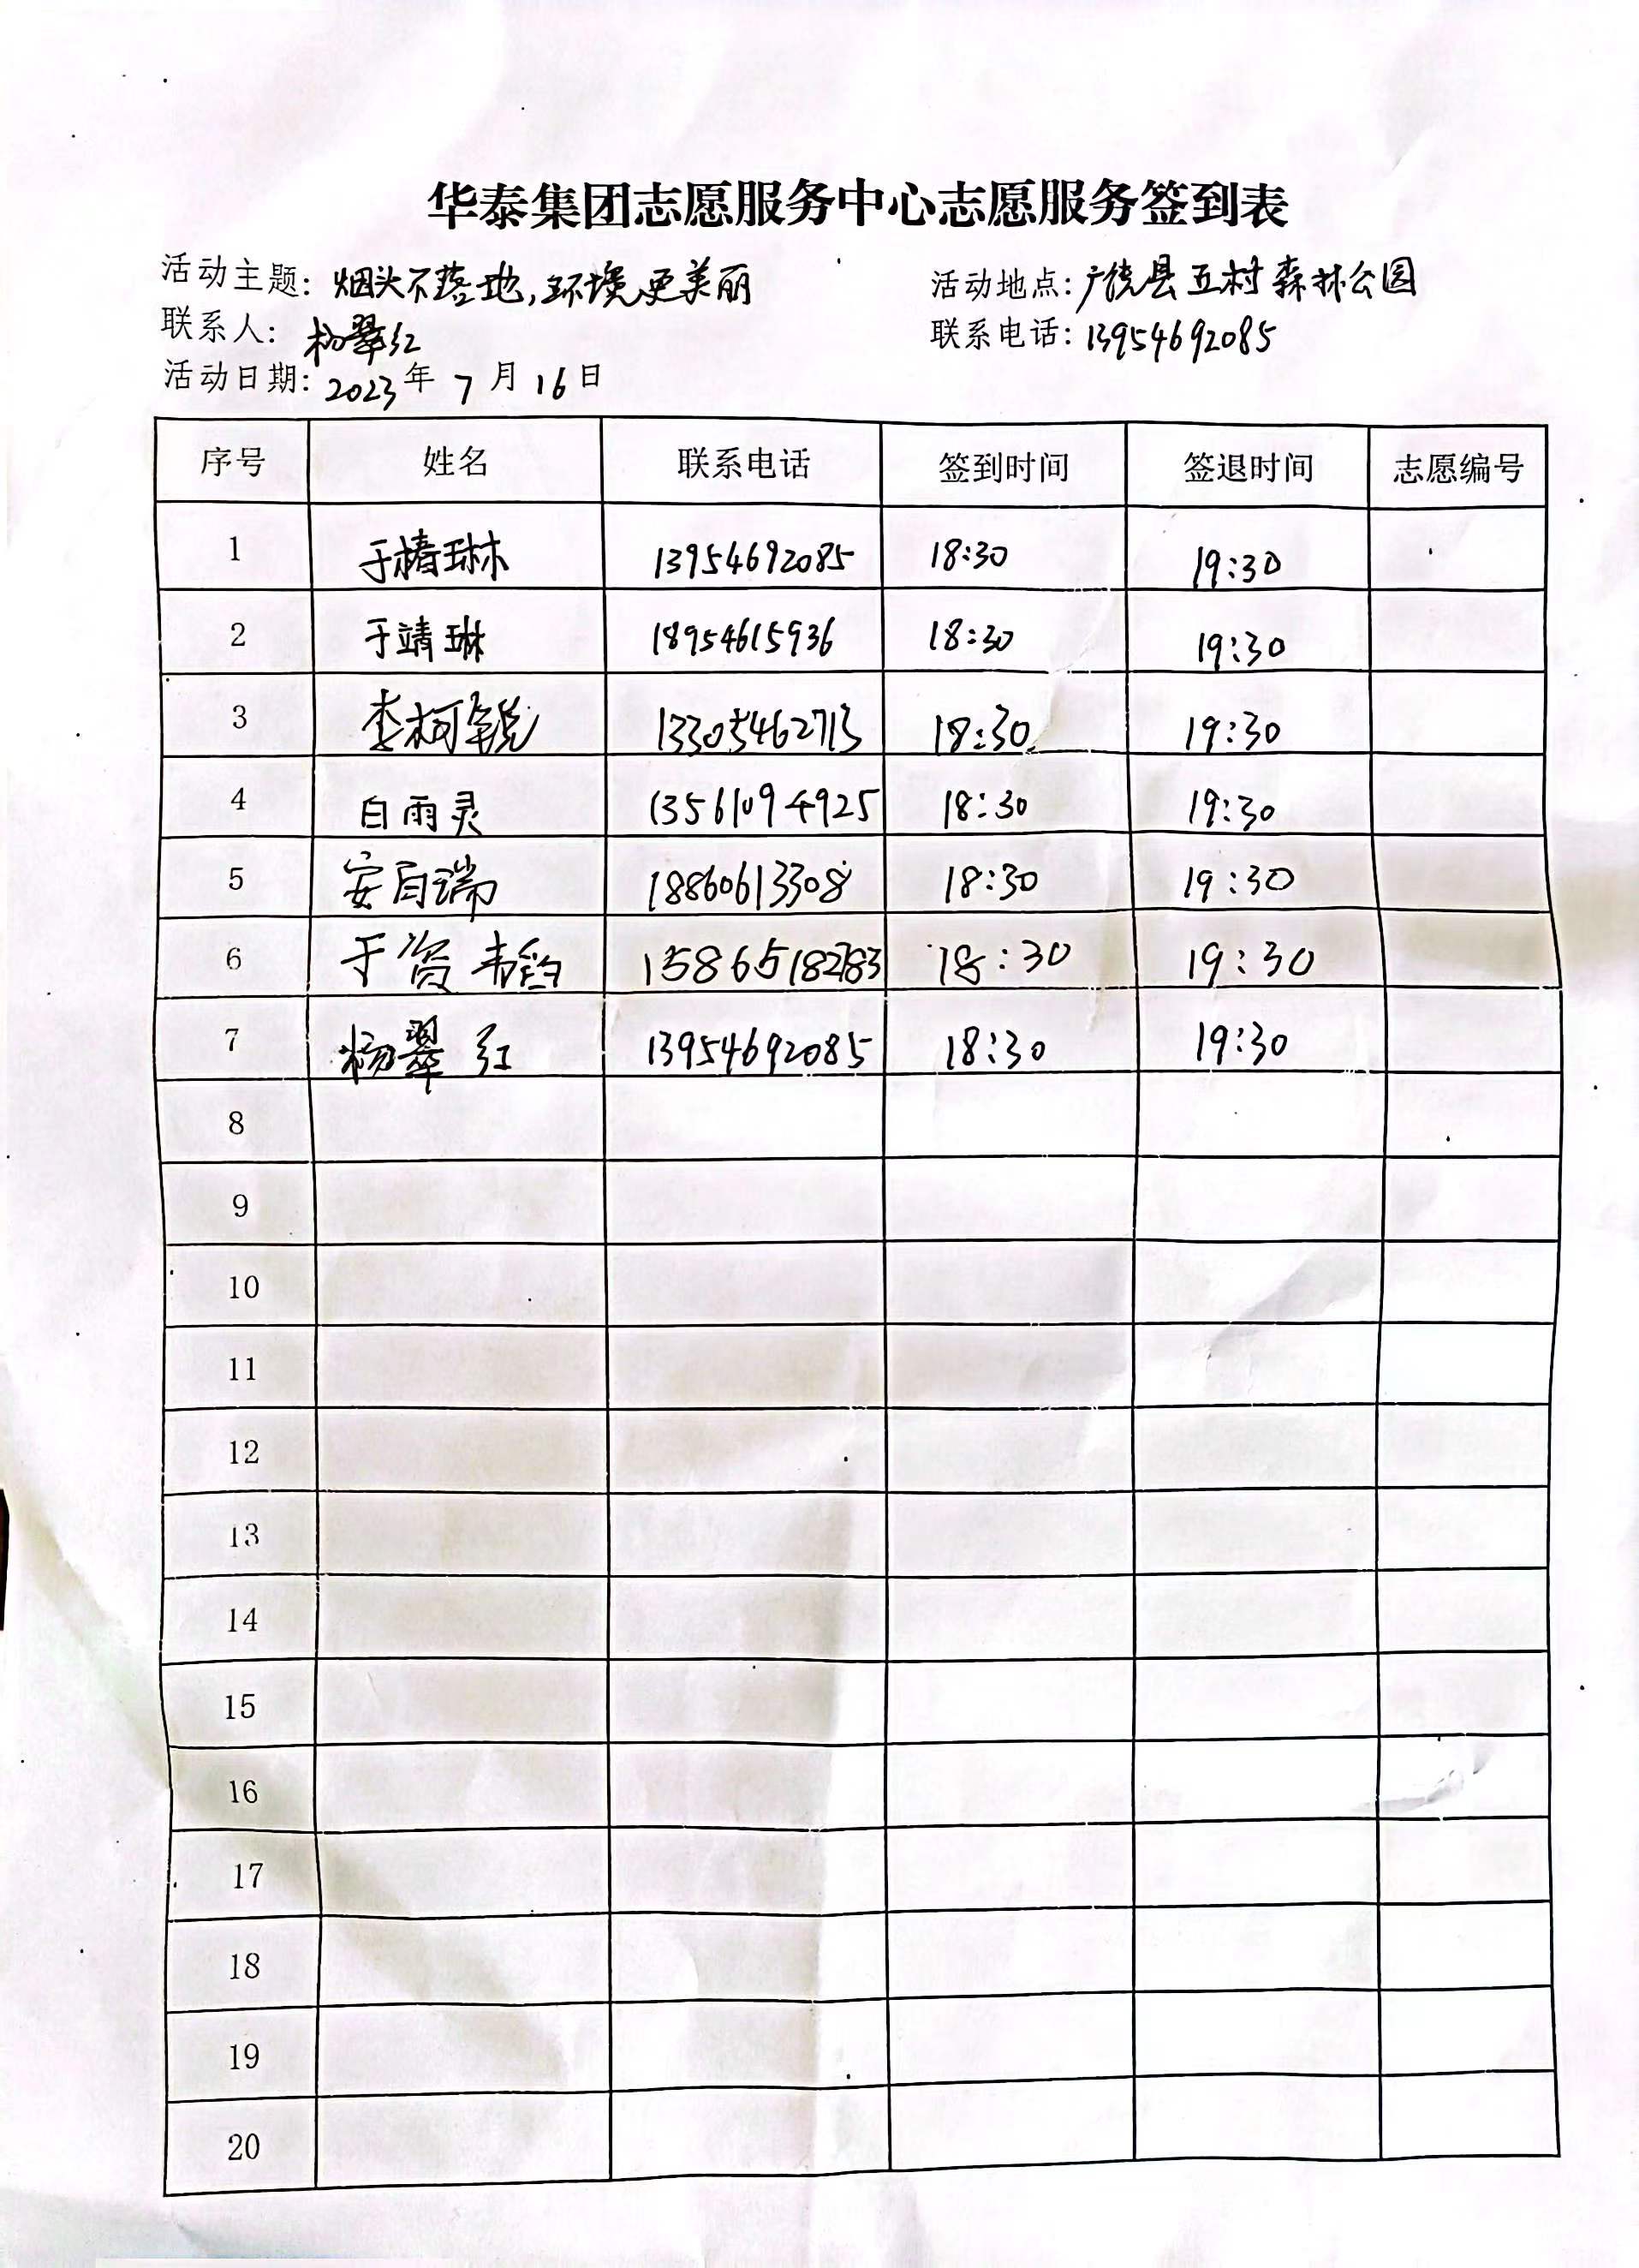 华泰集团志愿服务中心志愿服务签到表
活动主题：烟头不落地，环境更美丽 活动地点：广饶县五村森林公园
联系人：杨翠红 联系电话：13954692085
活动日期：2023年7月16日
序号 姓名 联系电话 签到时间 签退时间 志愿编号
1 于椿琳 13954692085 18:30 19:30
2 于靖琳 18954615936 18:30 19:30
3 李柯锐 13305462713 18:30 19:30
4 白雨灵 13561094925 18:30 19:30
5 安百瑞 18860613308 18:30 19:30
6 于 15865182783 18:30 19:30
7 杨翠红 13954692085 18:30 19:30
8
9
10
11
12
13
14
15
16
17
18
19
20